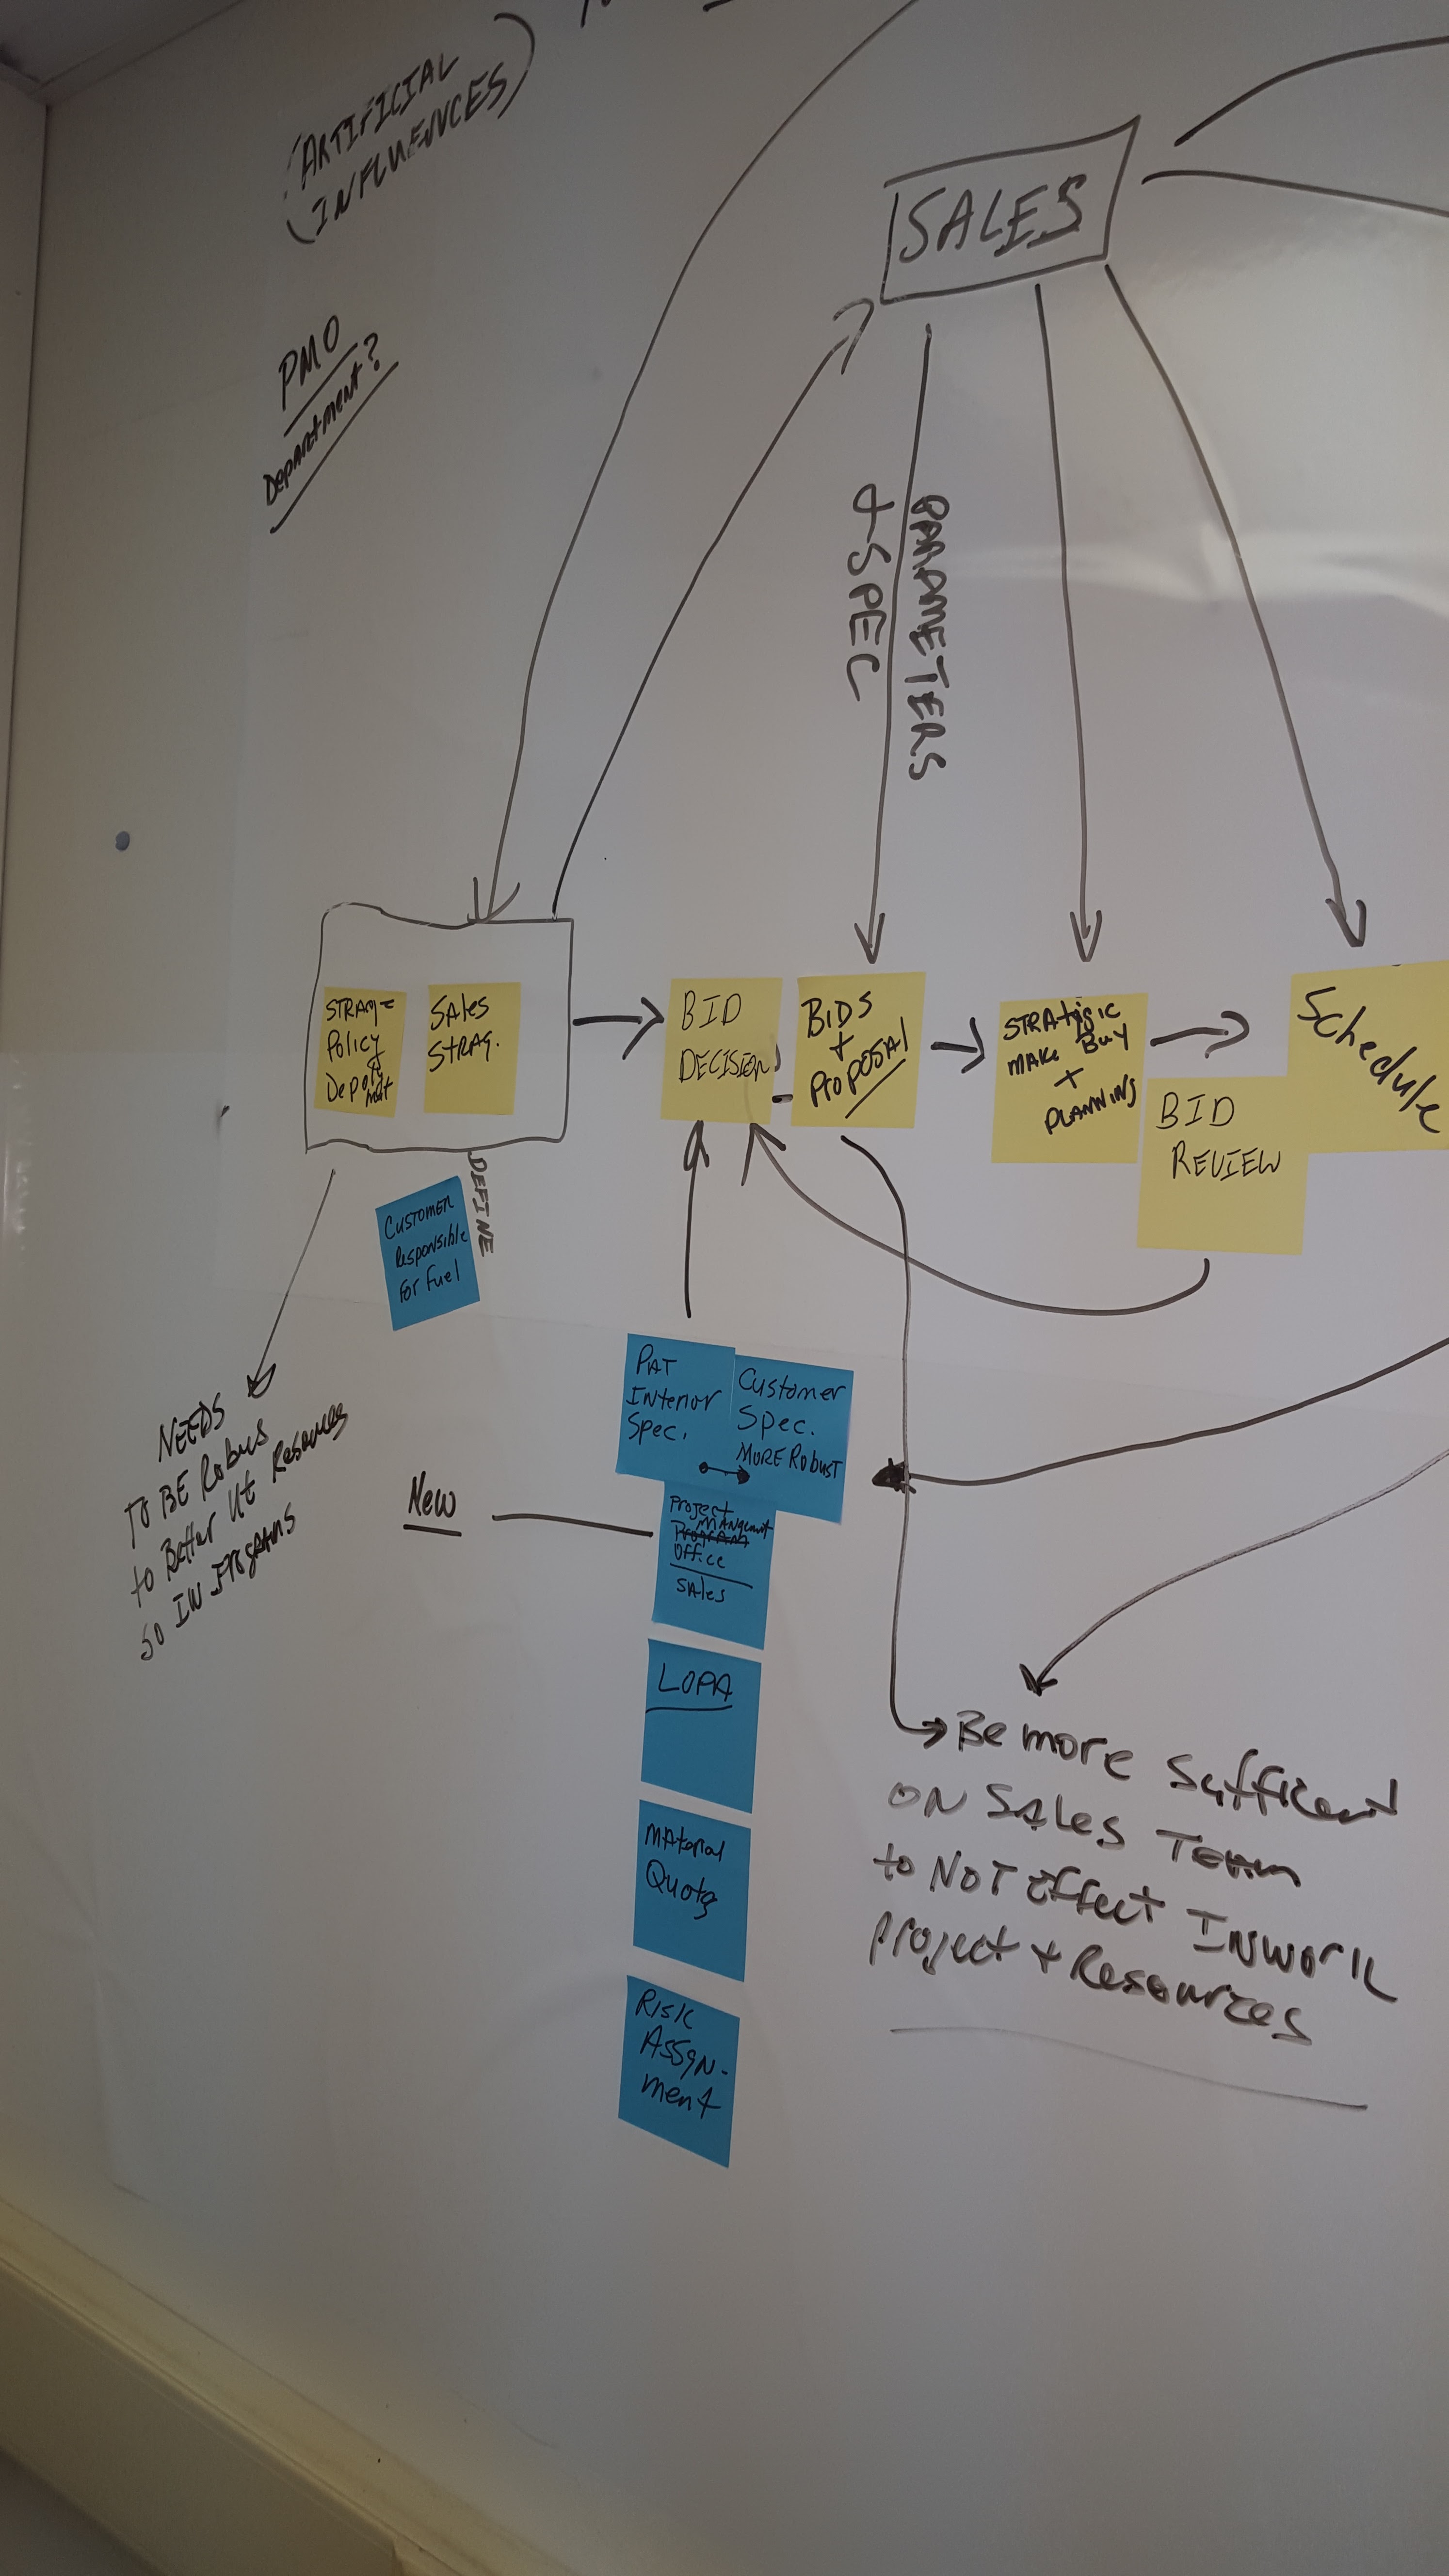 (ARTIFICIAL
INFLUENCES)
PMO
Department?
SALES
PARAMETERS
+ SPEC
Policy
Sales
STRAG.
BID
DECISION
BIDS
+
Proposal
STRATegic
MAKE Buy
+
PLANNING
BID
REVIEW
Schedule
DEFINE
CUSTOMER
Responsible
For Fuel
NEEDS
TO BE Robus
to Better Ut Resources
SO IN Programs
PAT
INterior
Spec.
Customer
Spec.
MORE Robust
New
Project
MANgement
Program
Office
SAles
LOPA
MAterial
Quote
RISK
ASSgN-
ment
Be more Sufficent
ON SALes TEAM
to NOT Effect INWORK
Project + Resources